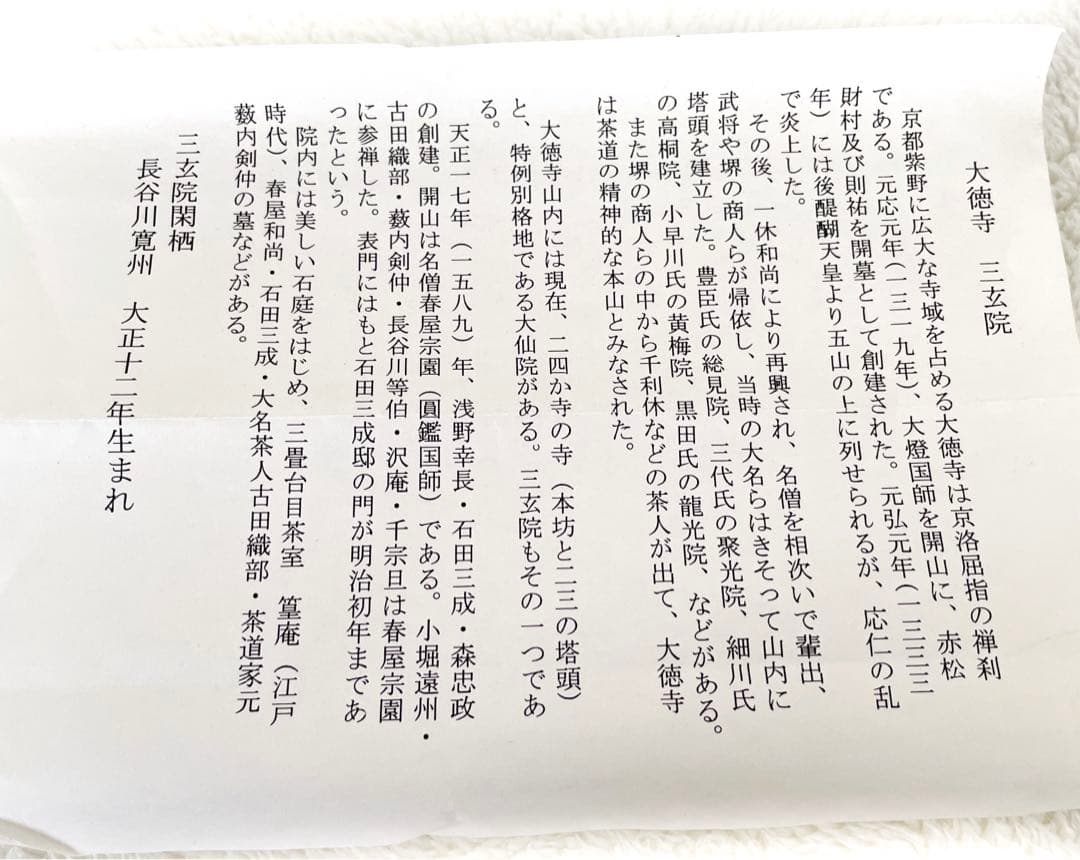 大徳寺　三玄院
京都紫野に広大な寺域を占める大徳寺は京洛屈指の禅刹
である。元応元年（一三一九年）、大燈国師を開山に、赤松
財村及び則祐を開墓として創建された。元弘元年（一三三三
年）には後醍醐天皇より五山の上に列せられるが、応仁の乱
で炎上した。
その後、一休和尚により再興され、名僧を相次いで輩出、
武将や堺の商人らが帰依し、当時の大名らはきそって山内に
塔頭を建立した。豊臣氏の総見院、三代氏の聚光院、細川氏
の高桐院、小早川氏の黄梅院、黒田氏の龍光院、などがある。
また堺の商人らの中から千利休などの茶人が出て、大徳寺
は茶道の精神的な本山とみなされた。
大徳寺山内には現在、二四か寺の寺（本坊と二三の塔頭）
と、特例別格地である大仙院がある。三玄院もその一つであ
る。
天正一七年（一五八九）年、浅野幸長・石田三成・森忠政
の創建。開山は名僧春屋宗園（圓鑑国師）である。小堀遠州・
古田織部・薮内剣仲・長谷川等伯・沢庵・千宗旦は春屋宗園
に参禅した。表門にはもと石田三成邸の門が明治初年まであ
ったという。
院内には美しい石庭をはじめ、三畳台目茶室　篁庵（江戸
時代）、春屋和尚・石田三成・大名茶人古田織部・茶道家元
薮内剣仲の墓などがある。
三玄院閑栖
長谷川寛州　大正十二年生まれ